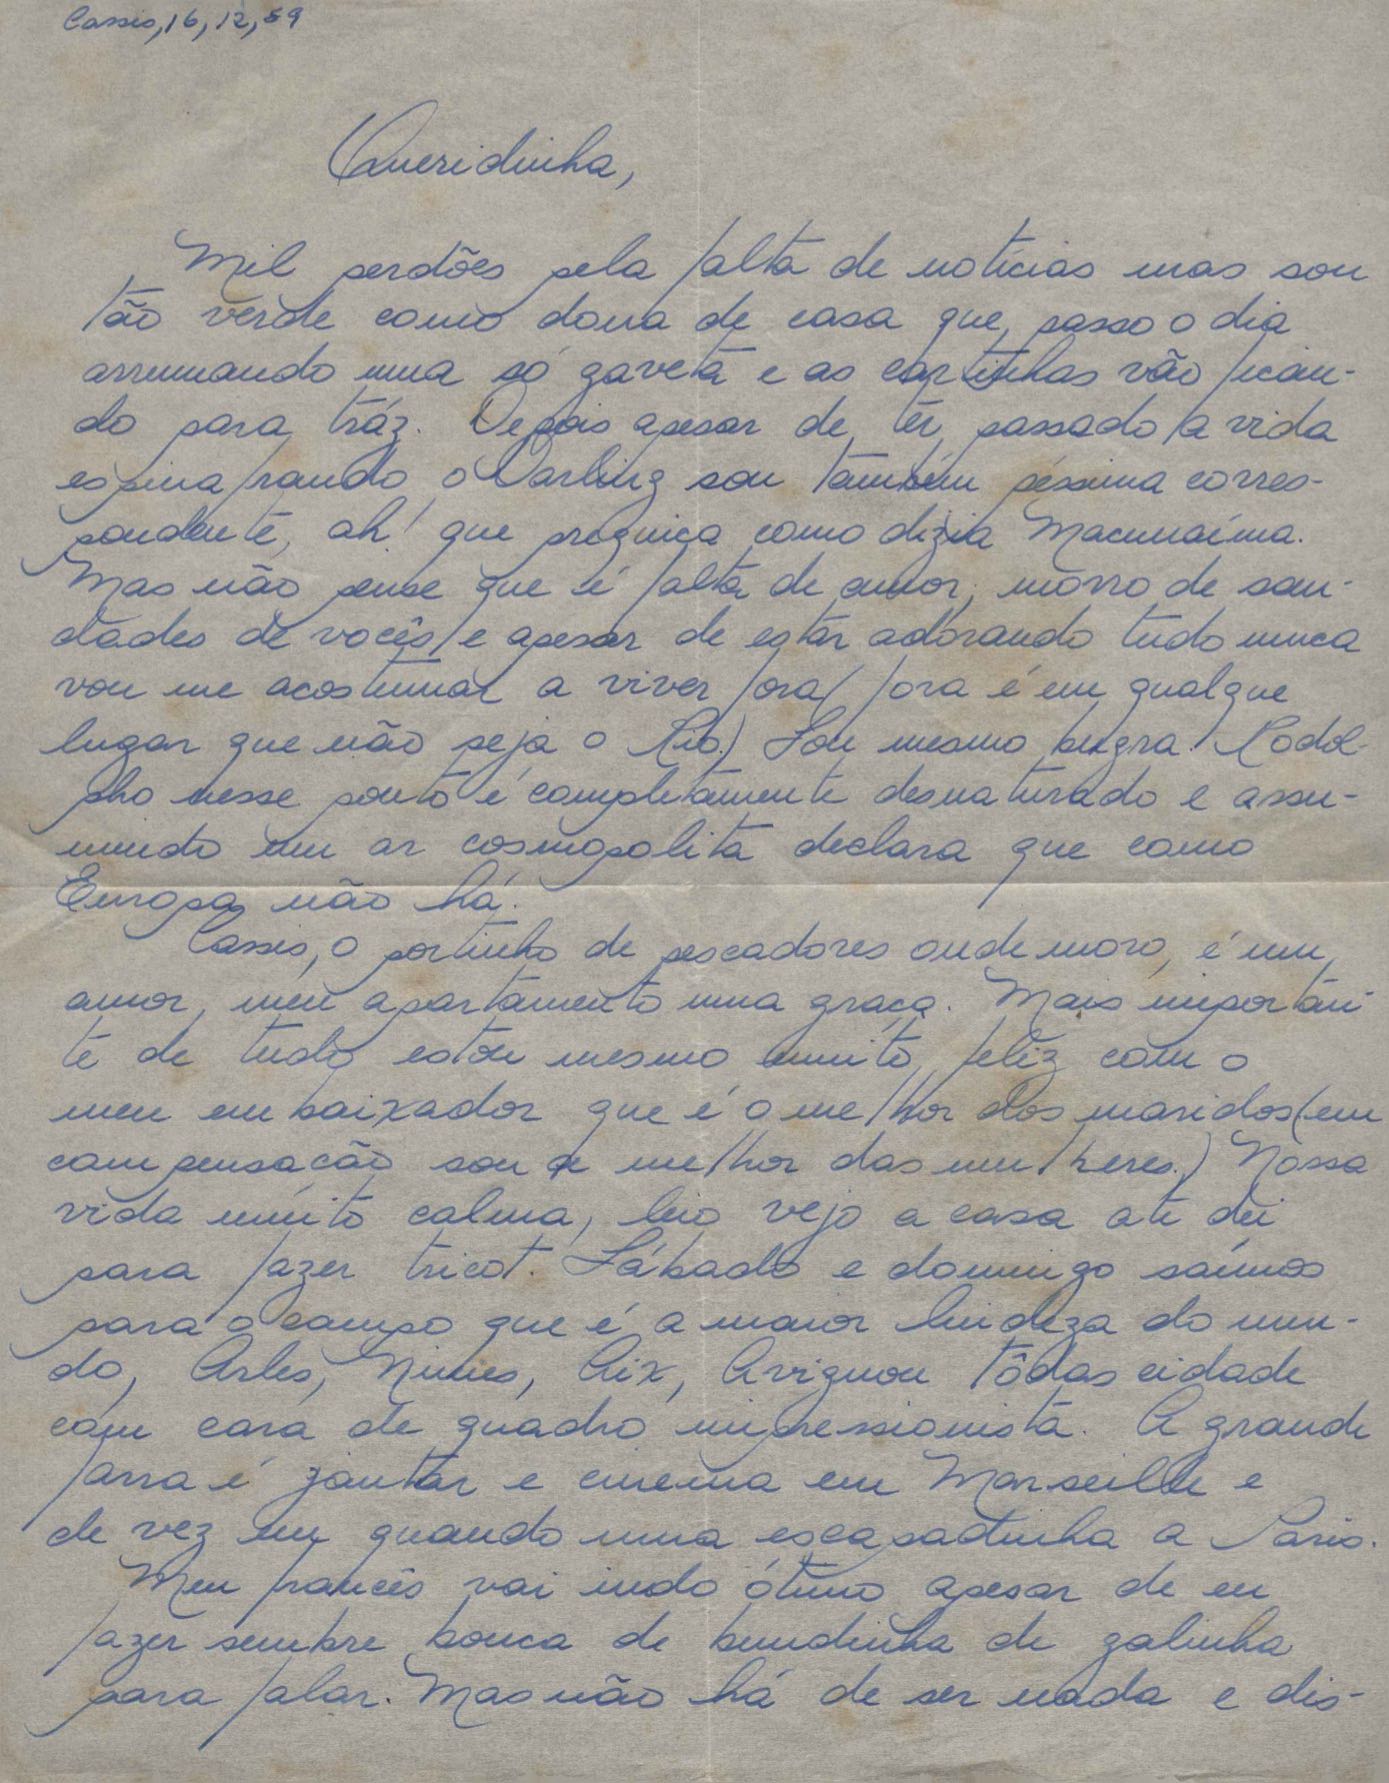 Cassis, 16, 12, 59
Queridinha,
Mil perdões pela falta de notícias mas sou
tão verde como dona de casa que passo o dia
arrumando uma só gaveta e as cartinhas vão fican-
do para tráz. Depois apesar de ter passado a vida
espinafrando o Darling sou também péssima corres-
pondente, ah! que preguiça como dizia Macunaíma.
Mas não pense que é falta de amor, morro de sau-
dades de vocês e apesar de estar adorando tudo nunca
vou me acostumar a viver fora (fora é em qualque
lugar que não seja o Rio.) Sou mesmo bugra! Rodol-
pho nesse ponto é completamente desnaturado e assu-
mindo um ar cosmopolita declara que como
Europa não há.
Cassis, o portinho de pescadores onde moro, é um
amor, meu apartamento uma graça. Mais importan-
te de tudo estou mesmo muito feliz com o
meu embaixador que é o melhor dos maridos (em
compensação sou a melhor das mulheres.) Nossa
vida muito calma, leio vejo a casa até dei
para fazer tricot. Sábado e domingo saímos
para o campo que é a maior lindeza do mun-
do, Arles, Nimes, Aix, Avignon tôdas cidade
com cara de quadro impressionista. A grande
farra é jantar e cinema em Marseille e
de vez em quando uma escapadinha a Paris.
Meu francês vai indo ótimo apesar de eu
fazer sempre bouca de bundinha de galinha
para falar. Mas não há de ser nada e dis-